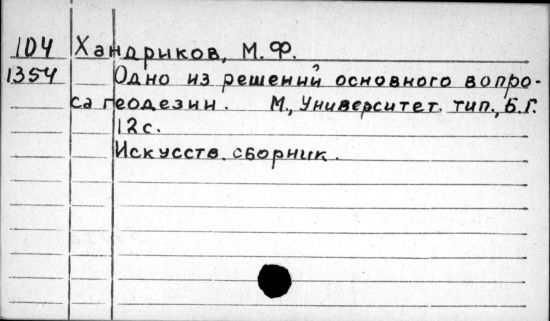 104 Хандриков, М.Ф.
1354 Одно из решений основного вопро-
са геодезии. М., Университет. тип., Б.Г.
12с.
Искусств. сборник.